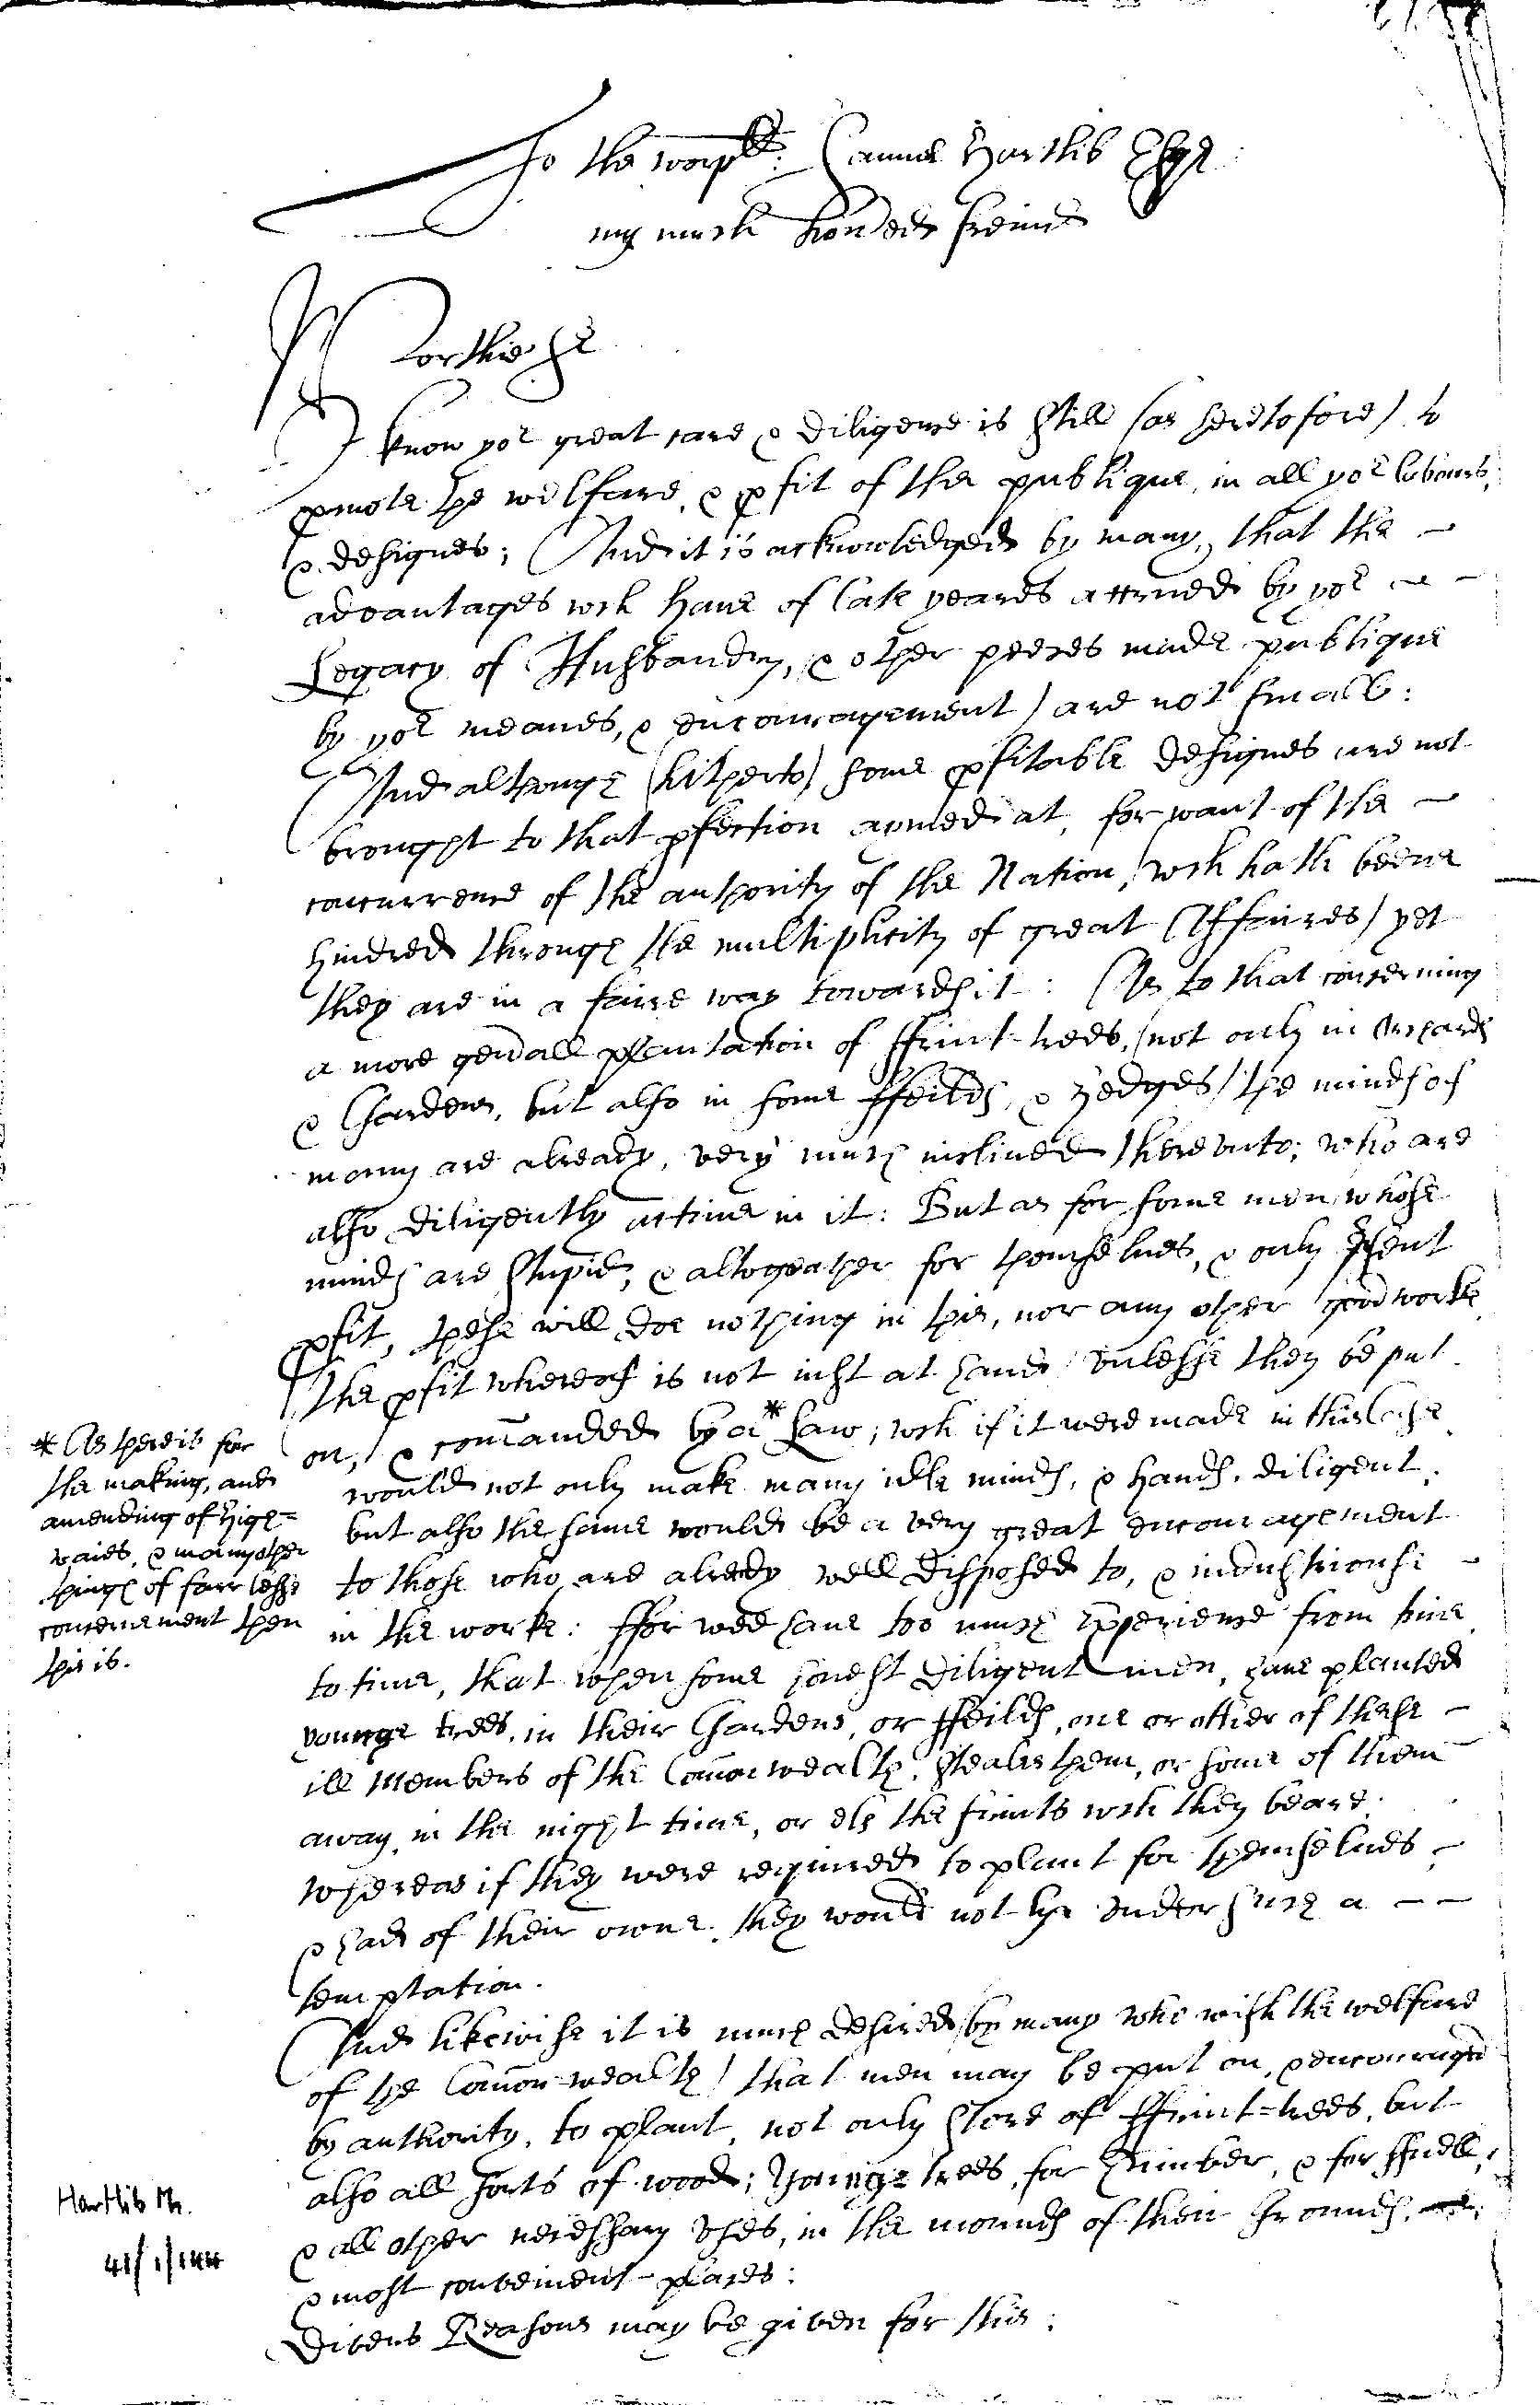 To the worpll: Samuel Hartlib Esqr:
my much honored freind
Worthie Sr
I know yor great care & diligence is still (as heretofore) to
pmote the wellfare, & pfit of the publique, in all yor labours,
& designes; And it is acknowledged by many, that the -
advantages wch haue of late yeares accrued by yor - -
Legacy of Husbandry, & other peeces made publique
by yor meanes, & encouragement) are not small:
And although (hitherto) some pfitable designes are not
brought to that pfection aymed at, for want of the -
concurrence of the authority of the Nation, (wch hath beene
hindred through the multiplicity of great Affaires) yet
they are in a faire way towards it: As to that concerning
a more generall plantation of ffruit-trees, (not only in Orchards
& Gardens, but also in some ffeilds, & Hedges) the minds of
many are already, very much inclined therevnto; who are
also diligently actiue in it: But as for some men, whose
minds are stupid, & altogeather for themselues, & only psent
pfit, these will doe nothing in this, nor any other good worke
(the pfit whereof is not iust at hand) vnlesse they be put
on, & comanded by a * Law; wch if it were made in this Case
would not only make many idle minds, & hands, diligent,
but also the same would be a very great encouragement
to those who are already well disposed to, & industriouse -
in the worke: ffor wee haue too much experience from time
to time, that when some honest diligent men, haue planted
younge trees, in their Gardens, or ffeilds, one or other of these -
ill Members of the Comonwealth, steales them, or some of them
away, in the night time, or els the fruits wch they beare.
whereas if they were required to plant for themselues, -
& had of their owne, they would not lye vnder such a - -
temptation.
And likewise it is much desired (by many who wish the welfare
of the Comon-wealth) that men may be put on, & encouraged
by authority, to plant, not only store of ffruit=trees, but
also all sorts of wood; Younge trees, for Timber, & for ffuell,
& all other necessary vses, in the mounds of their Grounds,
& most convenient places:
Divers Reasons may be given for this:
* As there is for
the making, and
amending of high=
waies, & many other
things of farr lesse
concernement then
this is.
Hartlib Ms.
41/1/144